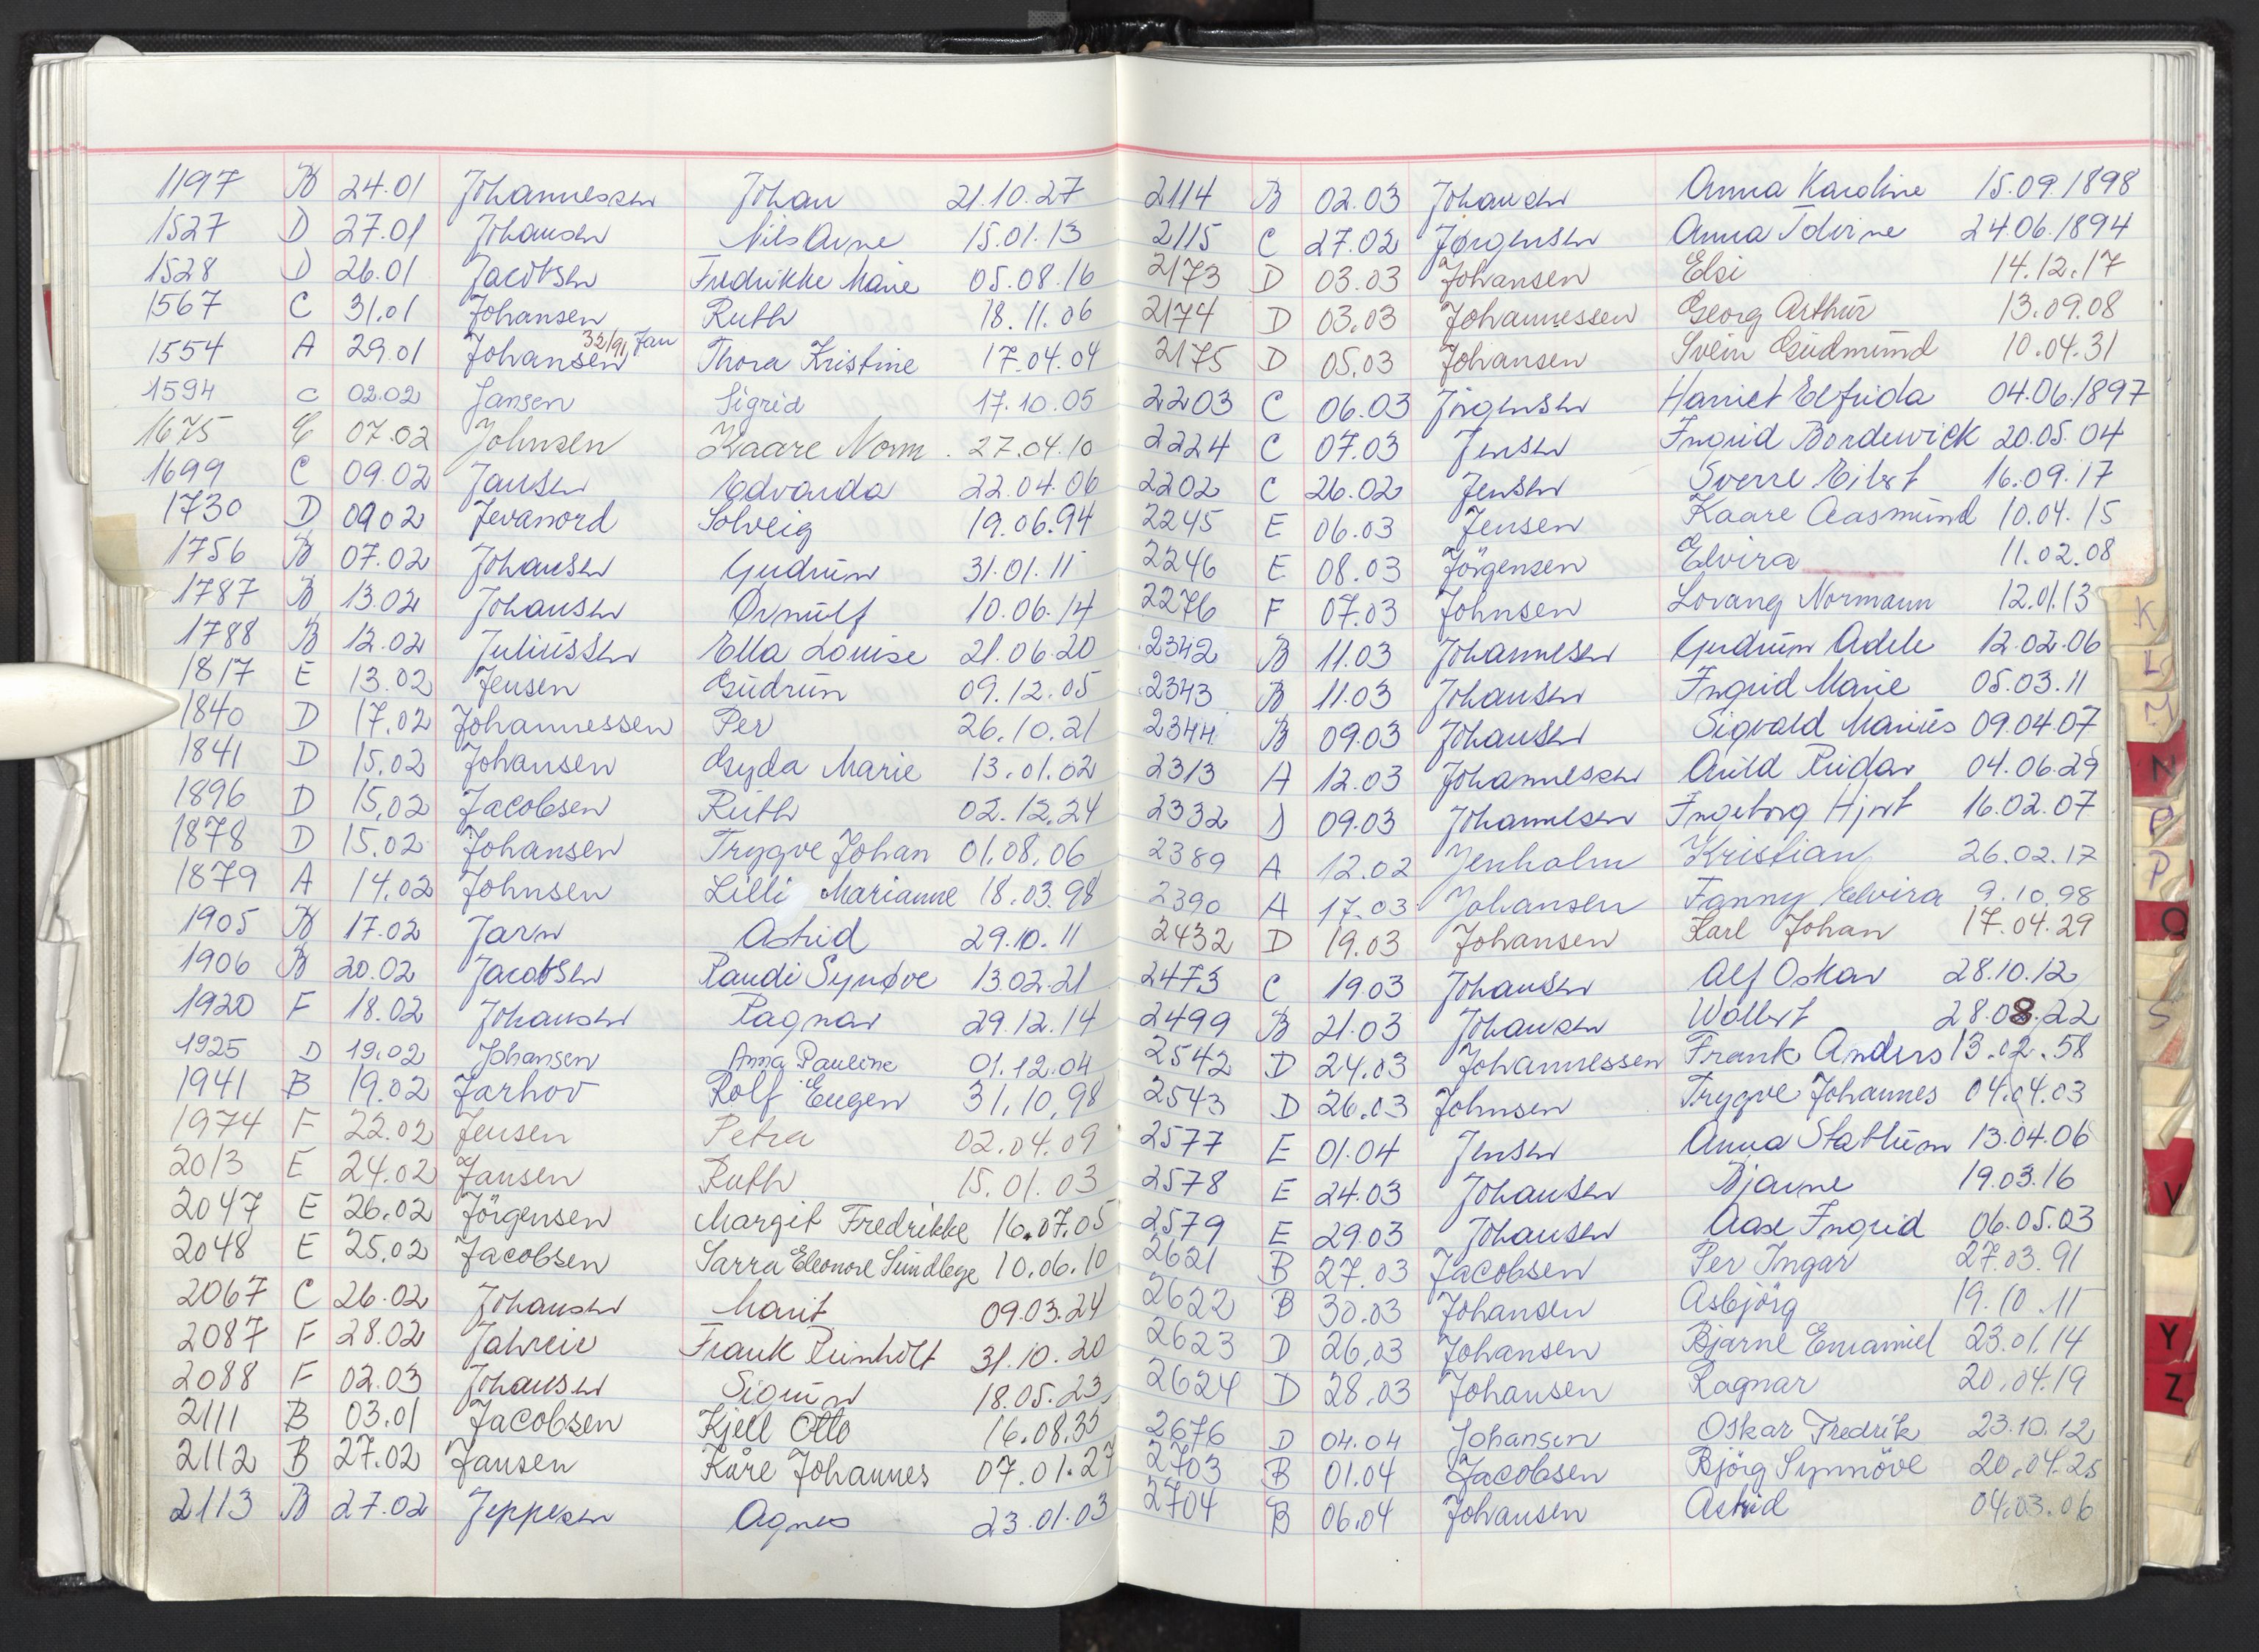 1197 B 24.01 Johannessen Johan 21.10.27
1527 D 27.01 Johansen Nils Arne 15.01.13
1528 D 26.01 Jacobsen Fredrikke Marie 05.08.16
1567 C 31.01 Johansen Ruth 18.11.06
32/91 Jan
1554 A 29.01 Johansen Thora Kristine 17.04.04
1594 C 02.02 Jansen Sigrid 17.10.05
1675 E 07.02 Johnsen Kaare Norm. 27.04.10
1699 C 09.02 Jansen Edvarda 22.04.06
1730 D 09.02 Jevanord Solveig 19.06.94
1756 B 07.02 Johansen Gudrun 31.01.11
1787 B 13.02 Johansen Ørnulf 10.06.14
1788 B 12.02 Juliussen Ella Louise 21.06.20
1817 E 13.02 Jensen Gudrun 09.12.05
1840 D 17.02 Johannessen Per 26.10.21
1841 D 15.02 Johansen Gyda Marie 13.01.02
1896 D 15.02 Jacobsen Ruth 02.12.24
1878 D 15.02 Johansen Trygve Johan 01.08.06
1879 A 14.02 Johnsen Lilli Marianne 18.03.98
1905 B 17.02 Jarn Astrid 29.10.11
1906 B 20.02 Jacobsen Randi Synøve 13.02.21
1920 F 18.02 Johansen Ragnar 29.12.14
1925 D 19.02 Johansen Anna Pauline 01.12.04
1941 B 19.02 Jarhov Rolf Eugen 31.10.98
1974 F 22.02 Jensen Petra 02.04.09
2013 E 24.02 Jansen Ruth 15.01.03
2047 E 26.02 Jörgensen Margit Fredrikke 16.07.05
2048 E 25.02 Jacobsen Sarra Eleonore Sundlege 10.06.10
2067 C 26.02 Johansen Marit 09.03.24
2087 F 28.02 Jahreie Frank Reinholt 31.10.20
2088 F 02.03 Johansen Sigrun 18.05.23
2111 B 03.01 Jacobsen Kjell Otto 16.08.35
2112 B 27.02 Jansen Kåre Johannes 07.01.27
2113 B 27.02 Jeppesen Agnes 23.01.03
2114 B 02.03 Johansen Anna Karoline 15.09.1898
2115 C 27.02 Jørgensen Anna Tolvine 24.06.1894
2173 D 03.03 Johansen Elsi 14.12.17
2174 D 03.03 Johannessen Georg Arthur 13.09.08
2175 D 05.03 Johansen Svein Gudmund 10.04.31
2203 C 06.03 Jörgensen Harriet Elfrida 04.06.1897
2224 C 07.03 Jensen Ingrid Bordewick 20.05.04
2202 C 26.02 Jensen Sverre Eilert 16.09.17
2245 E 06.03 Jensen Kaare Aasmund 10.04.15
2246 E 08.03 Jörgensen Elvira 11.02.08
2276 F 07.03 Johnsen Lorang Normann 12.01.13
2342 B 11.03 Johannesen Gudrun Adele 12.02.06
2343 B 11.03 Johansen Ingrid Marie 05.03.11
2344 B 09.03 Johansen Sigvald Marius 09.04.07
2313 A 12.03 Johannessen Auld Reidar 04.06.29
2332 D 09.03 Johannesen Ingeborg Hjort 16.02.07
2389 A 12.02 Jenholm Kristian 26.02.17
2390 A 17.03 Johansen Fanny Elvira 9.10.98
2432 D 19.03 Johansen Karl Johan 17.04.29
2473 C 19.03 Johansen Alf Oskar 28.10.12
2499 B 21.03 Johansen Wollert 28.08.22
2542 D 24.03 Johannessen Frank Anders 13.02.58
2543 D 26.03 Johnsen Trygve Johannes 04.04.03
2577 E 01.04 Jensen Anna Stabum 13.04.06
2578 E 24.03 Johansen Bjarne 19.03.16
2579 E 29.03 Johansen Aase Ingrid 06.05.03
2621 B 27.03 Jacobsen Per Ingar 27.03.91
2622 B 30.03 Johansen Asbjörg 19.10.11
2623 D 26.03 Johansen Bjarne Emaniel 23.01.14
2624 D 28.03 Johansen Ragnar 20.04.19
2676 D 04.04 Johansen Oskar Fredrik 23.10.12
2703 B 01.04 Jacobsen Björg Synnöve 20.04.25
2704 B 06.04 Johansen Astrid 04.03.06
K
L
M
N
O
P
Q
S
V
Y
Z